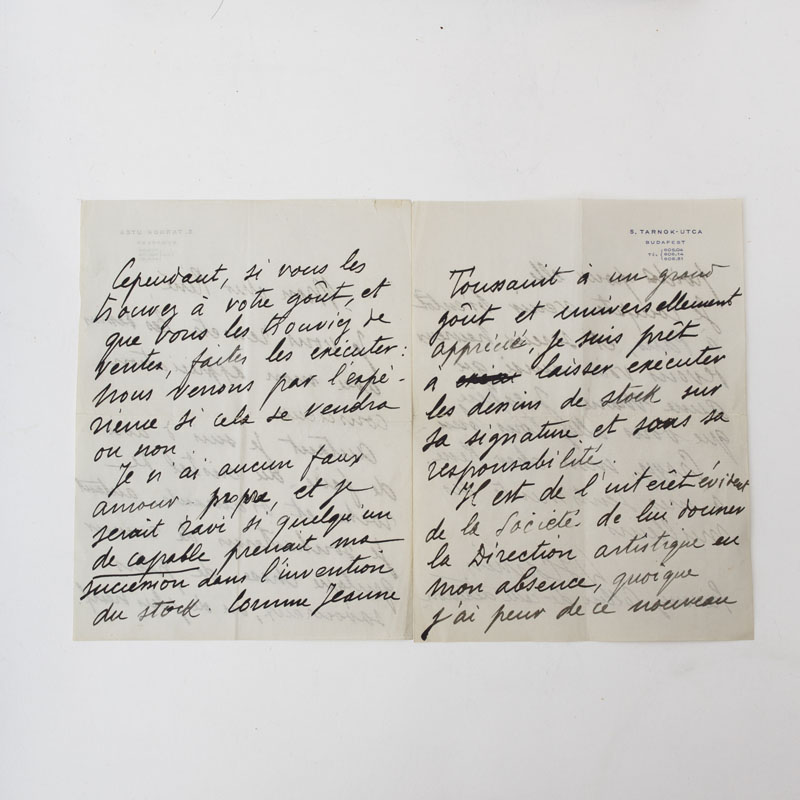 Cependant, si vous les
trouvez à votre goût, et
que vous les trouviez de
ventes, faites les exécuter:
nous verrons par l'expé-
rience si cela se vendra
ou non.
Je n'ai aucun faux
amour propre, et je
serait ravi si quelqu'un
de capable prenait ma
succession dans l'invention
du stock. Comme Jeanne
5, TARNOK-UTCA
BUDAPEST
Toussaint à un grand
goût et universellement
apprécié, je suis prêt
a laisser exécuter
les dessins de stock sur
sa signature et sous sa
responsabilité.
Il est de l'interêt évident
de la Société de lui donner
la Direction artistique en
mon absence, quoique
j'ai peur de ce nouveau